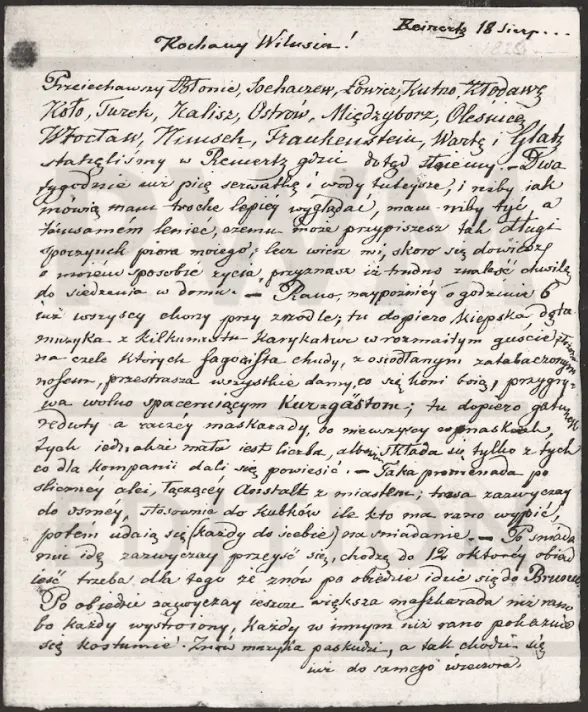 Reinertz 18 Sierp...
Kochany Wilusiu!
Przeiechawszy Błonie, Sochaczew, Łowicz, Kutno, Kłodawę
Koło, Turek, Kalisz, Ostrów, Międzyborz, Oleśnicę,
Wrocław, Nimsch, Frankenstein, Wartę i Glatz
stanęliśmy w Reinertz gdzie dotąd stoiemy. — Dwa
tygodnie iuż piię serwatkę i wody tuteysze, i niby iak
mówią mam trochę lepiéy wyglądać, mam niby tyć, a
tém samém leniec, czemu może przypiszesz tak długi
spoczynek pióra moiego; lecz wierz mi, skoro się dowiesz
o moiém sposobie życia, przyznasz iż trudno znaleść chwilę
do siedzenia w domu. — Rano, naypóźniéy o godzinie 6
iuż wszyscy chorzy przy zrzódle; tu dopiero kiepska dęta
muzyka z kilkunastu karykatur w rozmaitym guście złożona
na czele których fagocista chudy, z osiodłanym zatabaczonym
nosem, przestrasza wszystkie damy, co się koni boią, przygry-
wa wolno spaceruiącym Kurzgästom; tu dopiero gatunek
reduty a raczéy maskarady, bo niewszyscy w maskach,
tych iednakże mała iest liczba, albowiem składa się tylko z tych
co dla kompanii dali się powiesić. — Taka promenada po
śliczney alei, łączącéy Anstalt z miastem; trwa zazwyczay
do ósmey, stosownie do kubków ile kto ma rano wypić,
potém udaią się (każdy do siebie) na śniadanie. — Po śniada-
niu idę zazwyczay przeyść się, chodzę do 12 o któréy obiad
ieść trzeba, dla tego że znów po obiedzie idzie się do Brunnu.
Po obiedzie zazwyczay ieszcze większa maszkarada niż rano
bo każdy wystroiony, każdy w innym niż rano pokazuie
się kostiumie! Znów muzyka paskudzi, a tak chodzi się
iuż do samego wieczora.
PWM
EDITION